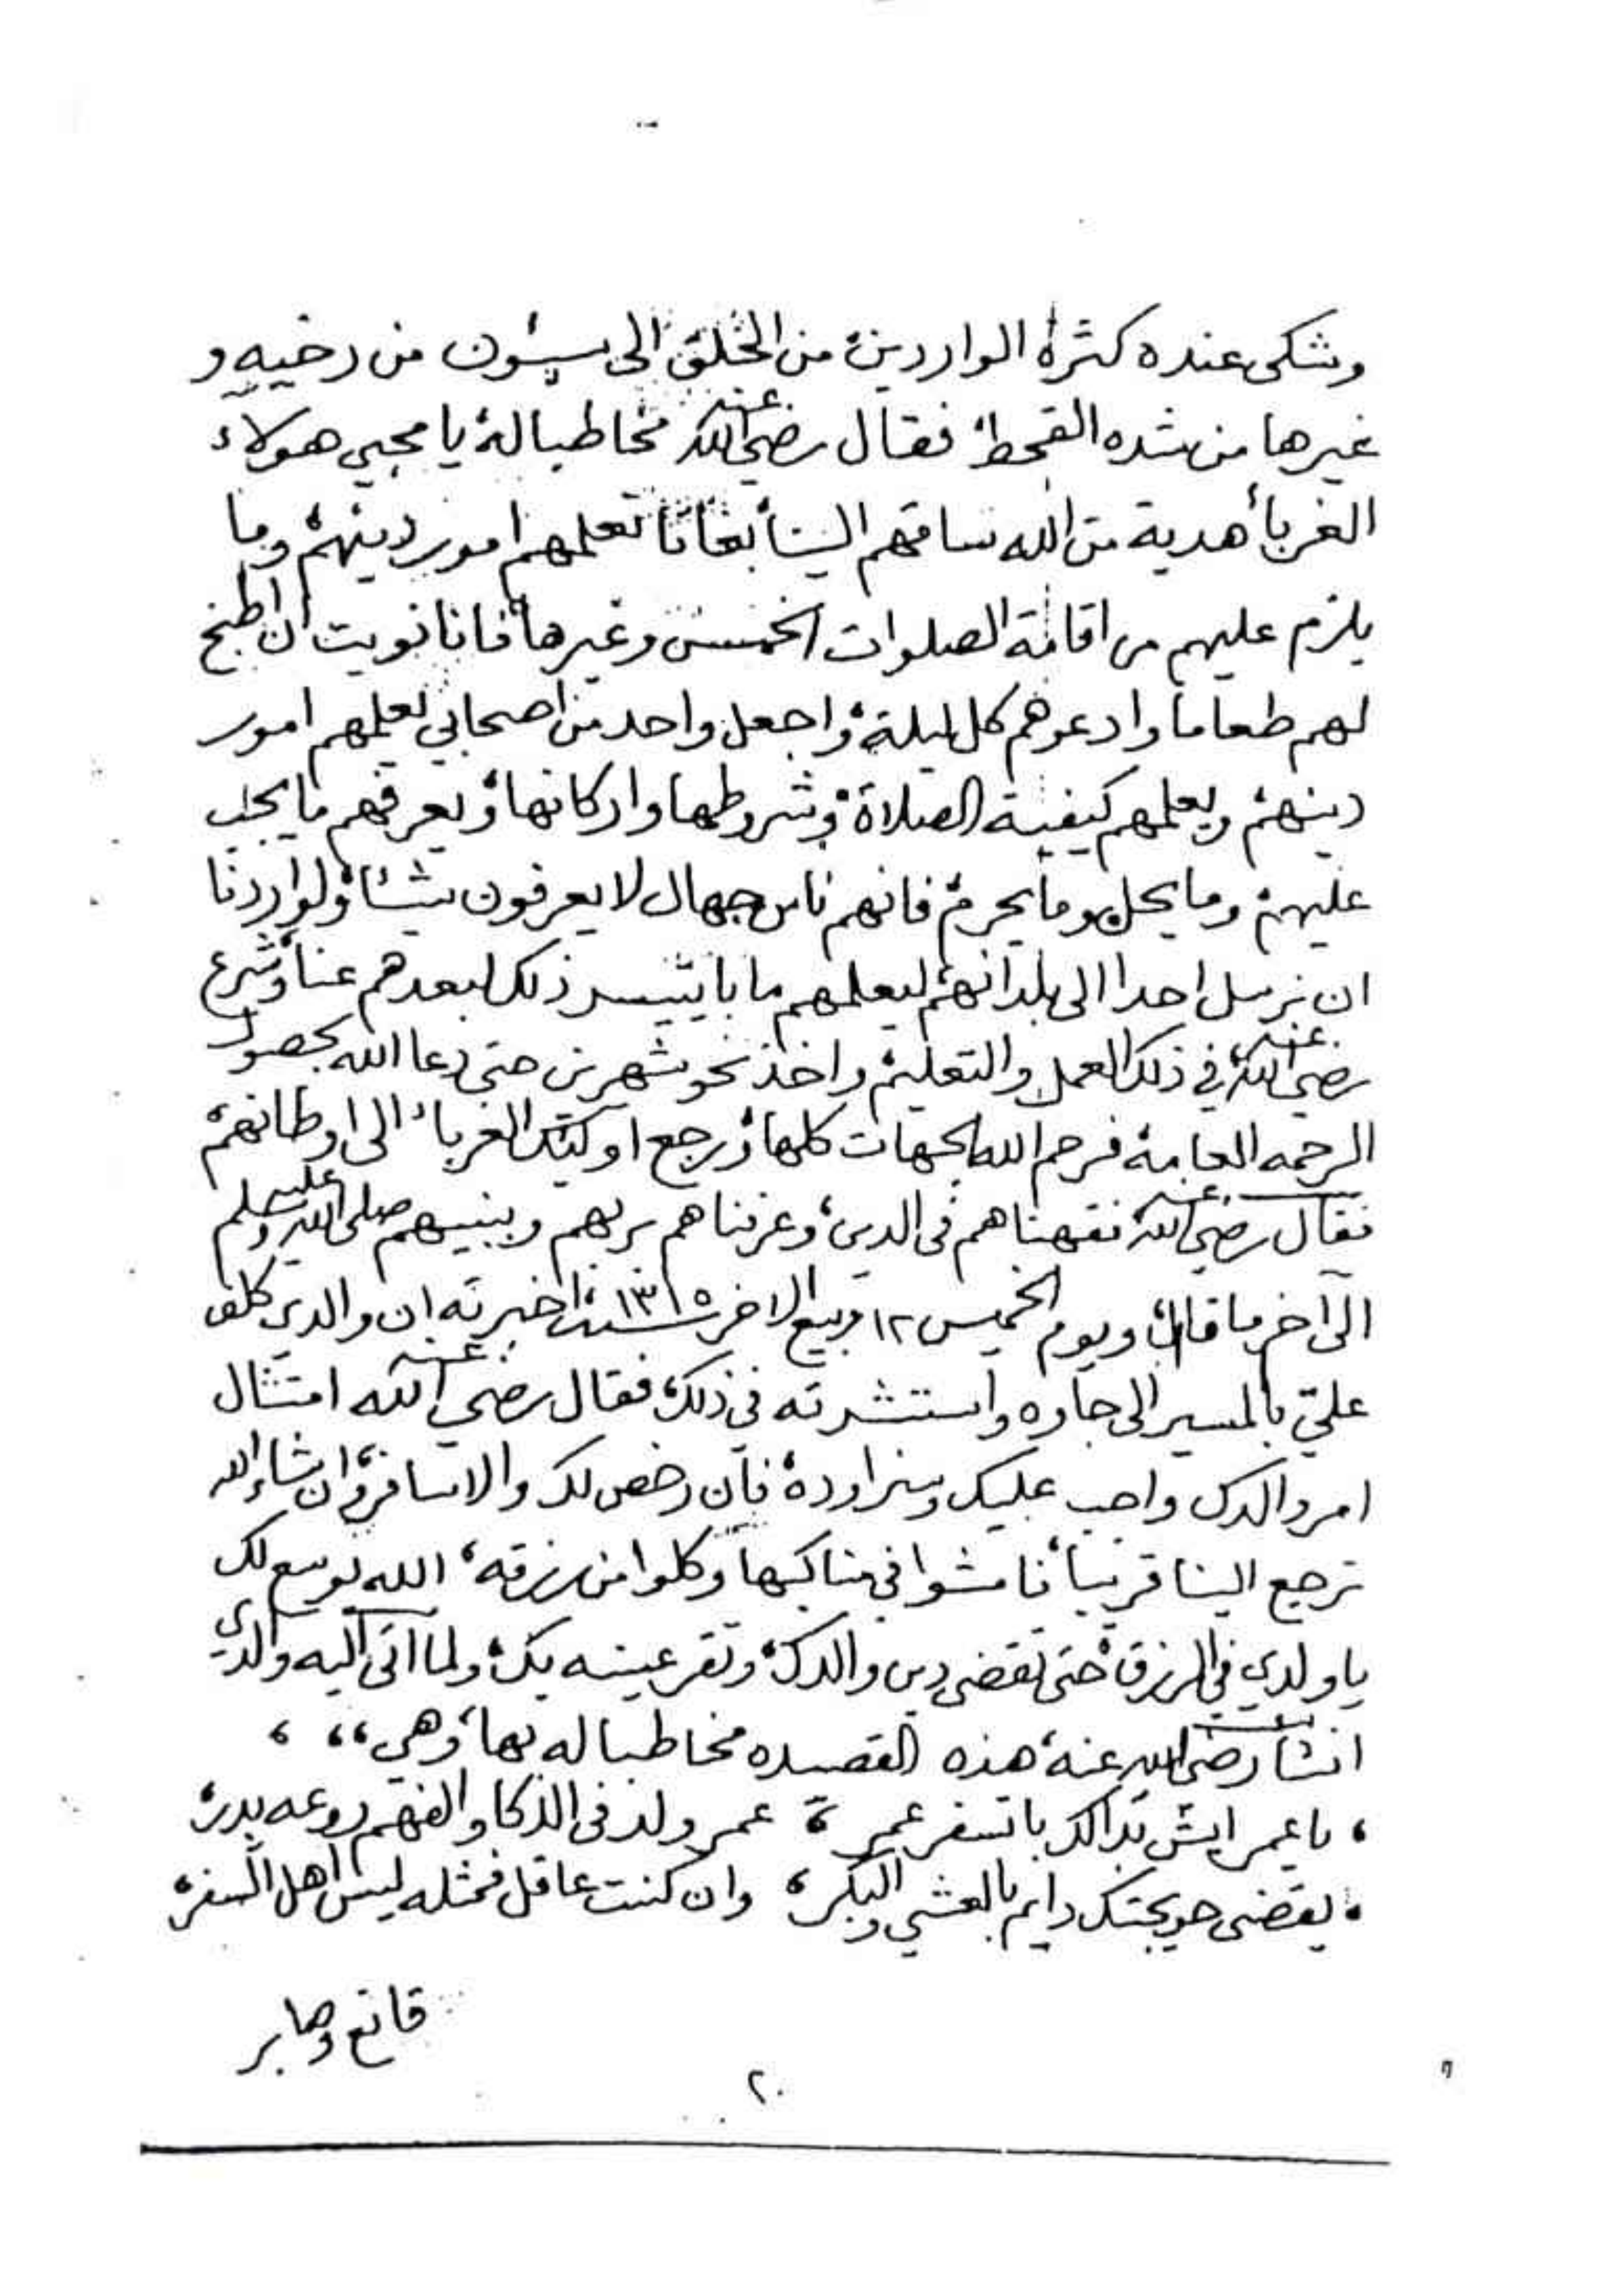 وشكى عنده كثرة الواردين، من الخلق الى سيئون من رخيه و
غيرها من شده القحط، فقال رضي الله عنه مخاطبا له، يا محبي هولاء
الغرباء هدية من الله ساقهم الينا، بغانا نعلمهم امور دينهم، وما
يلزم عليهم من اقامة الصلوات الخمس وغيرها، فانا نويت ان اطبخ
لهم طعاما وادعوهم كل ليلة، واجعل واحد من اصحابي يعلمهم امور
دينهم، ويعلمهم كيفية الصلاة، وشروطها واركانها، ويعرفهم ما يجب
عليهم، وما يحل وما يحرم، فانهم ناس جهال لا يعرفون شيئا، ولو اردنا
ان نرسل احدا الى بلدانهم، ليعلمهم ما با يتيسر ذلك لبعدهم عنا، وشرع
رضي الله عنه، في ذلك العمل والتعليم، واخذ نحو شهرين حتى دعا الله بحصول
الرحمه العامة، فرحم الله الجهات كلها، ورجع اولئك الغرباء الى اوطانهم،
فقال رضي الله عنه، فقهناهم في الدين، وعرفناهم بربهم وبنبيهم صلى الله عليه وسلم
الى آخر ما قال، ويوم الخميس ١٢ ربيع الاخر سنة ١٣١٥، اخبرته ان والدي كلف
عليّ بالمسير الى جاوه واستشرته في ذلك، فقال رضي الله عنه امتثال
امر والدك واجب عليك وسنراوده، فان رخص لك والا سافر، وان شاء الله
ترجع الينا قريبا، فامشوا في مناكبها وكلوا من رزقه، الله يوسع لك
يا ولدي في الرزق، حتى تقضي دين والدك، وتقر عينه بك، ولما اتى اليه والدي
انشأ رضي الله عنه، هذه القصيده مخاطبا له بها، وهي،، ،
، يا عمر ايش بدالك با تسفر عمر، عمر ولد في الذكا والفهم روعه بدر،
، يقضي حويجتك دايم بالعشي والبكر، وان كنت عاقل فمثله ليس اهل السفر،
قانع وصابر
٢٠